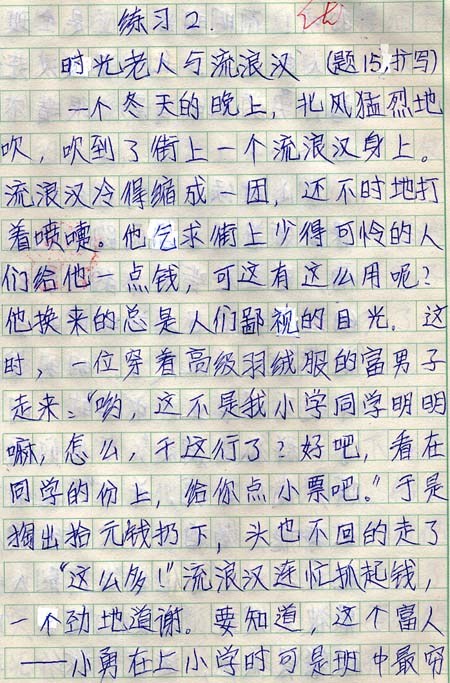 练习2.
优
时光老人与流浪汉 (题15,扩写)
一个冬天的晚上，北风猛烈地
吹，吹到了街上一个流浪汉身上。
流浪汉冷得缩成一团，还不时地打
着喷嚏。他乞求街上少得可怜的人
们给他一点钱，可这有这么用呢？
他换来的总是人们鄙视的目光。这
时，一位穿着高级羽绒服的富男子
走来：“哟，这不是我小学同学明明
嘛，怎么，干这行了？好吧，看在
同学的份上，给你点小票吧。”于是
掏出拾元钱扔下，头也不回的走了
“这么多！”流浪汉连忙抓起钱，
一个劲地道谢。要知道，这个富人
——小勇在上小学时可是班中最穷